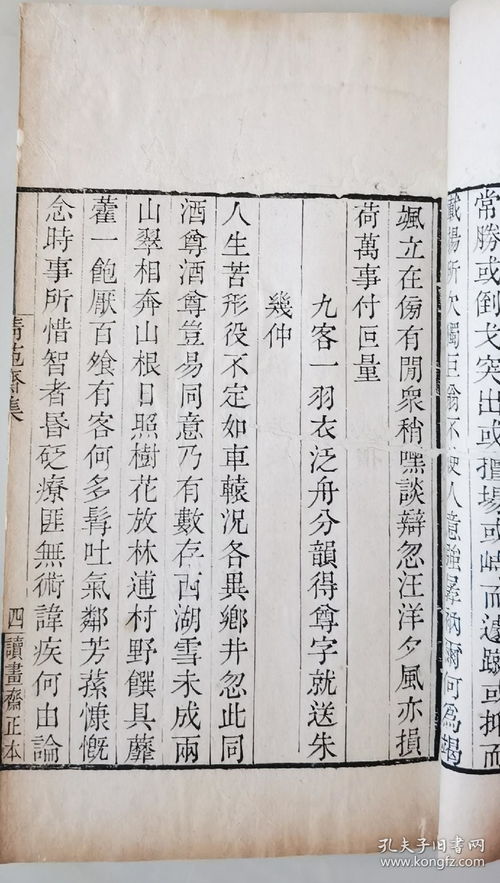 常勝或倒戈突出或擅場或崎而遽蹶或抑而
颯立在傍有閒衆稍嘿談辯忽汪洋夕風亦損
荷萬事付叵量
九客一羽衣泛舟分韻得尊字就送朱
幾仲
人生苦形役不定如車轅況各異鄉井忽此同
酒尊酒尊豈易同意乃有數存西湖雪未成兩
山翠相奔山根日照樹花放林逋村野饌具蘼
藿一飽厭百飱有客何多髯吐氣鄰芳蓀慷慨
念時事所惜智者昬砭療匪無術諱疾何由論
四
讀書齋正本
孔夫子旧书网
www.kongfz.com